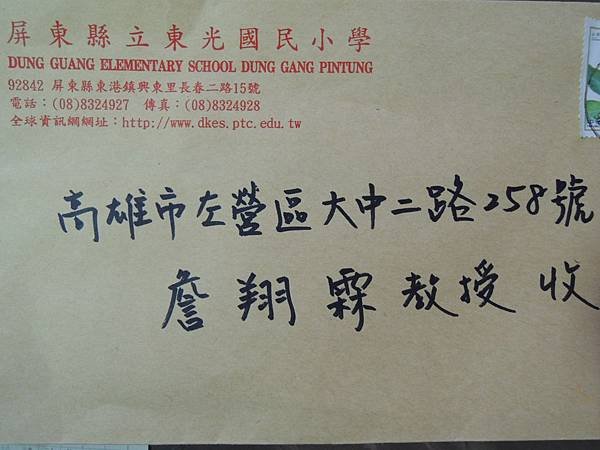 屏東縣立東光國民小學
DUNG GUANG ELEMENTARY SCHOOL DUNG GANG PINTUNG
92842 屏東縣東港鎮興東里長春二路15號
電話：(08)8324927 傳真：(08)8324928
全球資訊網網址：http://www.dkes.ptc.edu.tw
高雄市左營區大中二路258號
詹翔霖教授 收